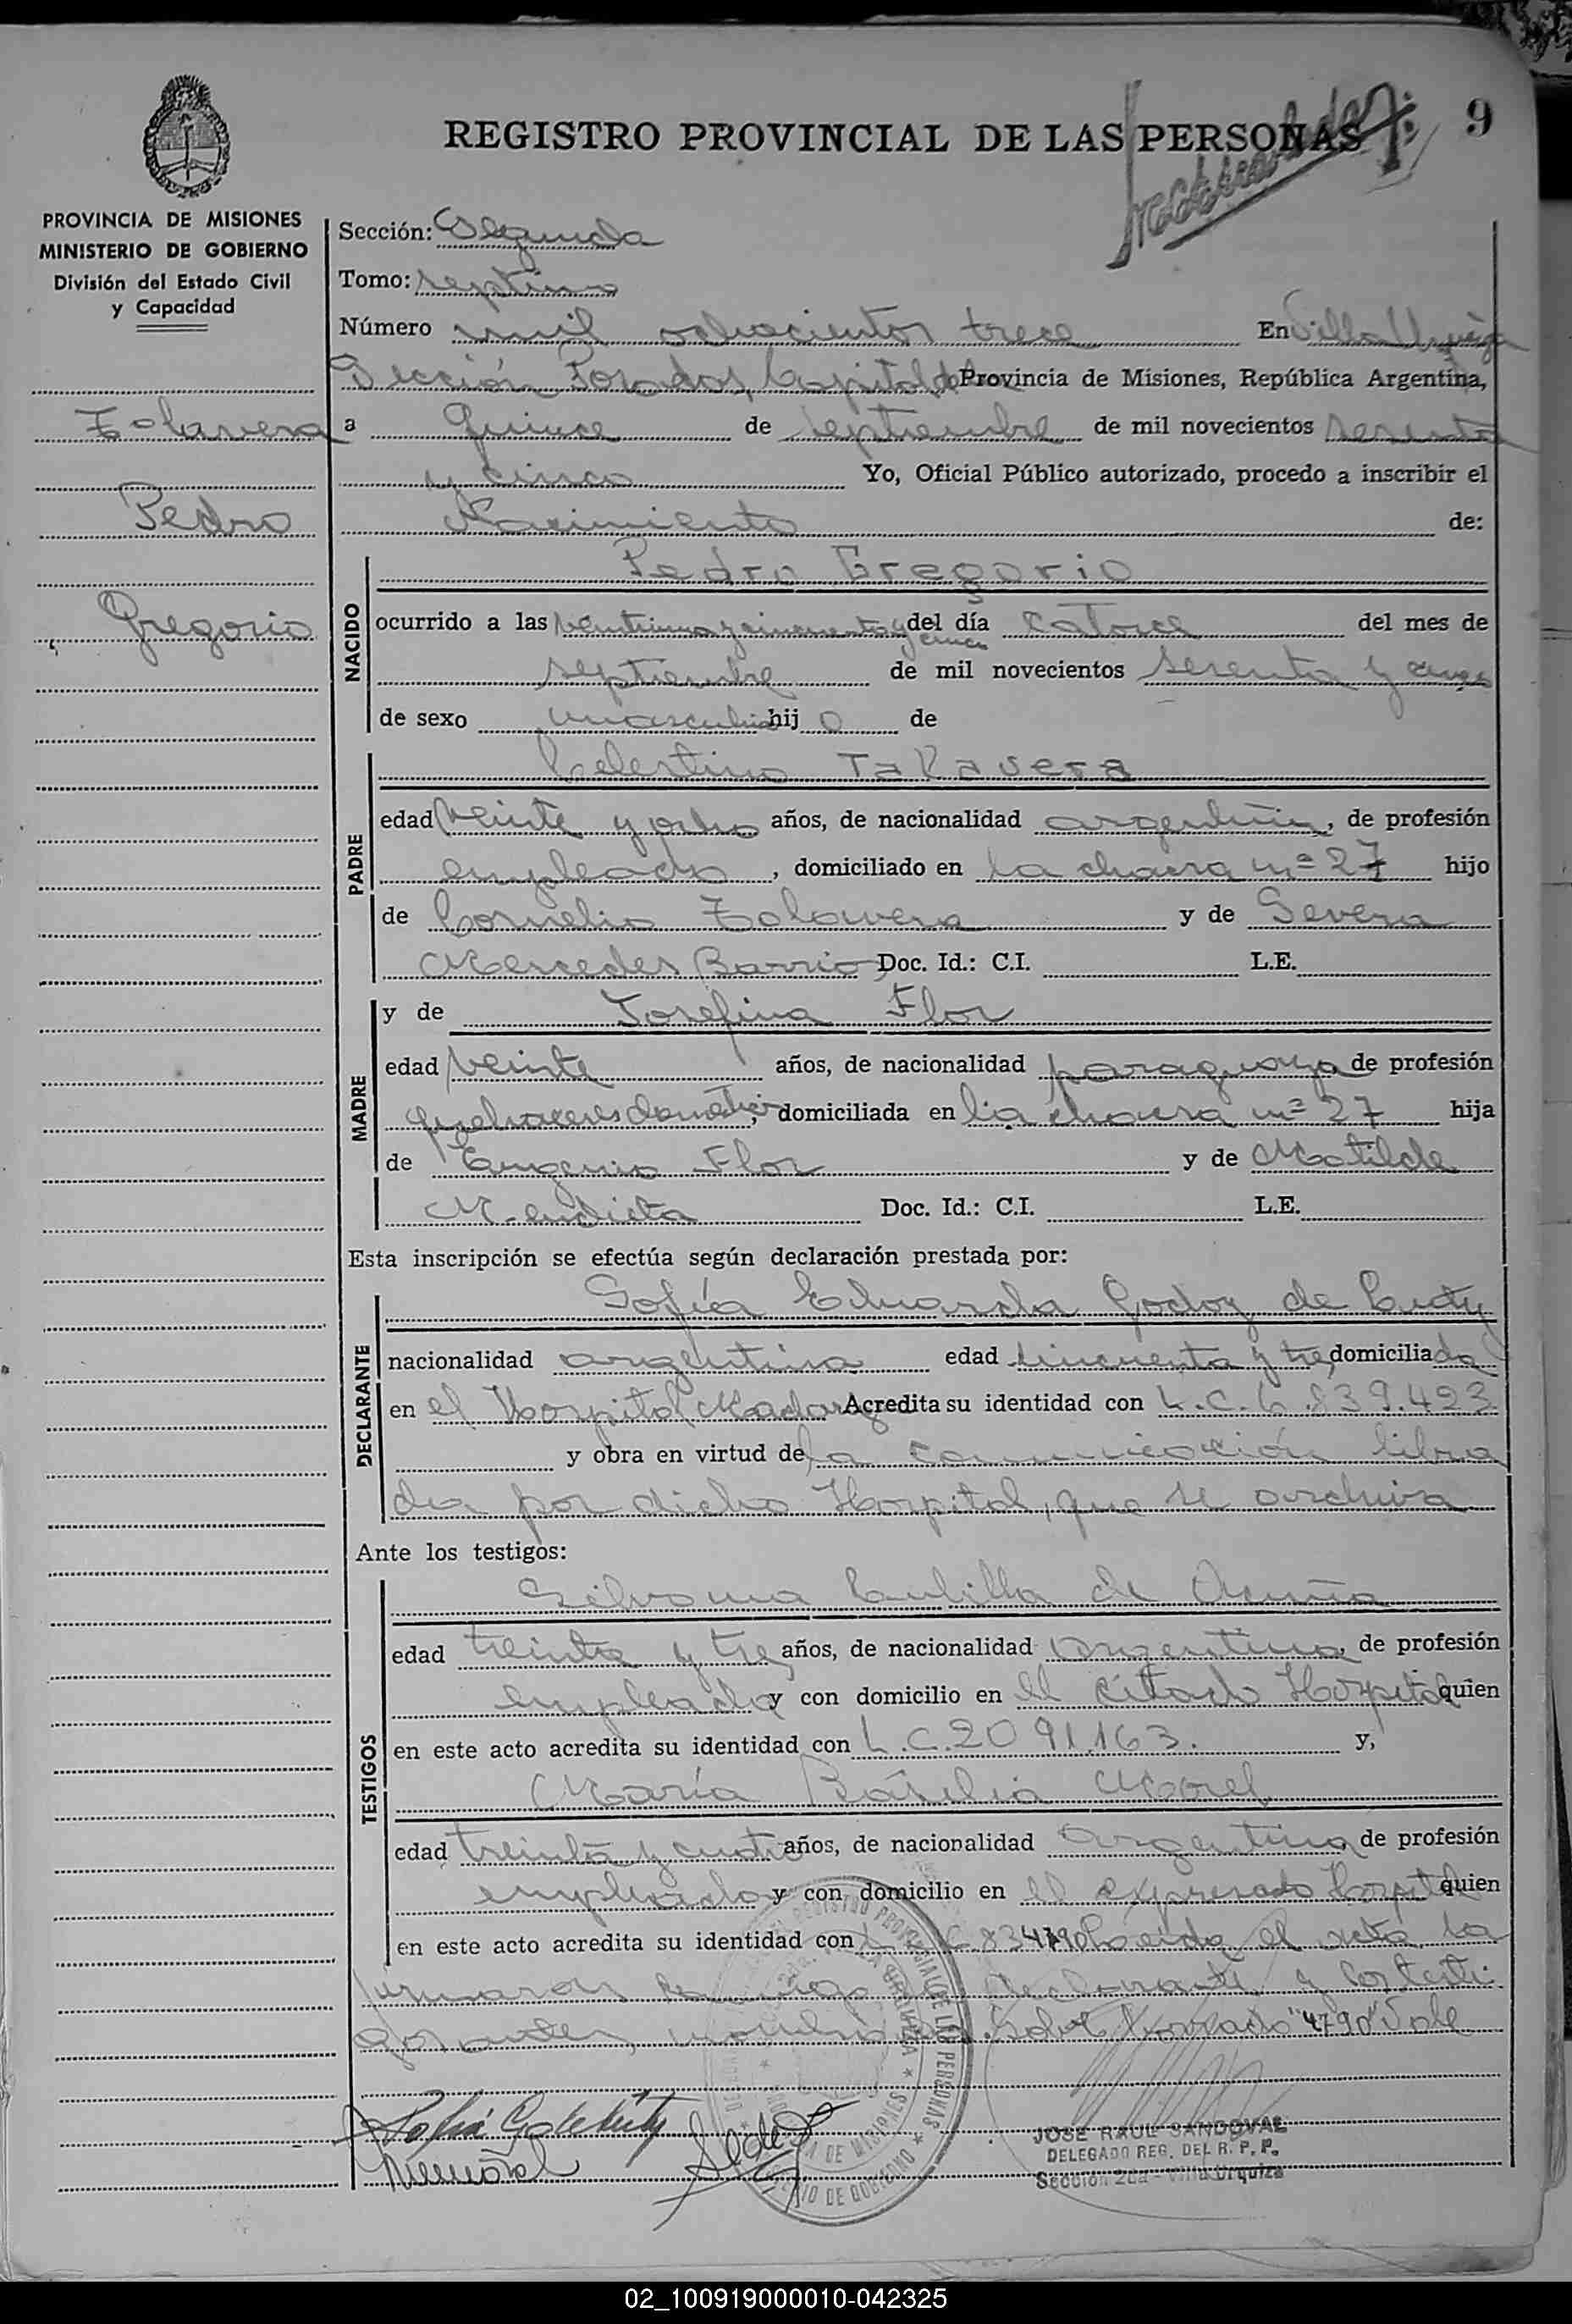 REGISTRO PROVINCIAL DE LAS PERSONAS
9
PROVINCIA DE MISIONES
MINISTERIO DE GOBIERNO
División del Estado Civil
y Capacidad
Talavera
Pedro
Gregorio
Sección: Segunda
Tomo: septimo
Número mil ochocientos trece En Villa Urquiza
Sección Posadas, Capital de Provincia de Misiones, República Argentina,
a Quince de septiembre de mil novecientos sesenta
y cinco Yo, Oficial Público autorizado, procedo a inscribir el
Nacimiento de:
NACIDO
Pedro Gregorio
ocurrido a las veintiuna y cincuenta y cinco del día catorce del mes de
septiembre de mil novecientos sesenta y cinco
de sexo masculino hijo de
PADRE
Celestino Talavera
edad veinte y ocho años, de nacionalidad argentina, de profesión
empleado, domiciliado en la chacra nº 27 hijo
de Cornelio Talavera y de Severa
Mercedes Barrio Doc. Id.: C.I. L.E.
MADRE
y de Josefina Flor
edad veinte años, de nacionalidad paraguaya de profesión
quehaceres domésticos, domiciliada en la chacra nº 27 hija
de Eugenio Flor y de Matilde
Mendieta Doc. Id.: C.I. L.E.
Esta inscripción se efectúa según declaración prestada por:
DECLARANTE
Sofía Eduarda Godoy de
nacionalidad argentina edad cincuenta y tres domiciliada
en el Hospital Madariaga Acredita su identidad con L.C. 6.839.423
y obra en virtud de la comunicación libra
da por dicho Hospital, que se archiva
Ante los testigos:
TESTIGOS
Silvana de Acuña
edad treinta y tres años, de nacionalidad argentina, de profesión
empleada y con domicilio en el citado Hospital quien
en este acto acredita su identidad con L.C. 2091.163. y,
María Basilia Morel
edad treinta y cuatro años, de nacionalidad argentina, de profesión
empleada y con domicilio en el expresado Hospital quien
en este acto acredita su identidad con Leida el acta la
firmaron conmigo, la declarante y los testi
gos Sobre borrado "4790" Vale
JOSE RAUL SANDOVAL
DELEGADO REG. DEL R. P. P.
Sección 2da - Villa Urquiza
02_100919000010-042325